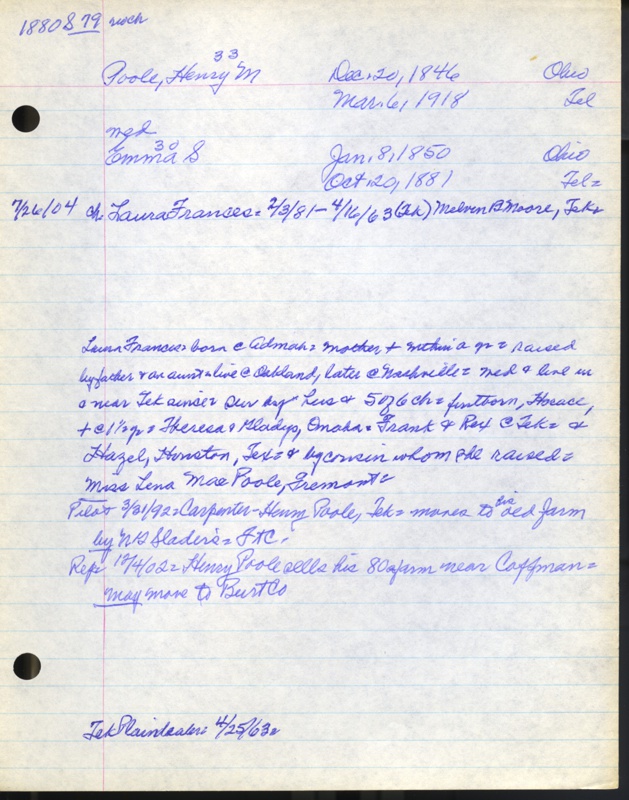 1880 S 79
33
Poole, Henry M Dec. 20, 1846 Ohio
Mar. 6, 1918 Tek
m&d
30
Emma S Jan. 8, 1850 Ohio
Oct. 20, 1881 Tek=
7/26/04 ch. Laura Frances= 2/3/81 – 4/16/63 (Tek) Melven B Moore, Tek=
Laura Frances= born c Admah= mother + within a yr = raised
by father & an aunt= live c Oakland, later c Nashville= med & live in
o near Tek since= Sur by Lus & 5 of 6 ch= firstborn, Horace,
+ c 1½ yr = Theresa & Gladys, Omaha= Frank & Rex c Tek= &
Hazel, Houston, Tex= & by cousin whom she raised=
Miss Lena Mae Poole, Fremont=
Pilot 3/31/92= Carpenter-Henry Poole, Tek= moves to his old farm
by Slader's=
Rep: 12/4/02= Henry Poole sells his 80a farm near Coffman=
may move to Burt Co
Tek Plaindealer: 4/25/63=